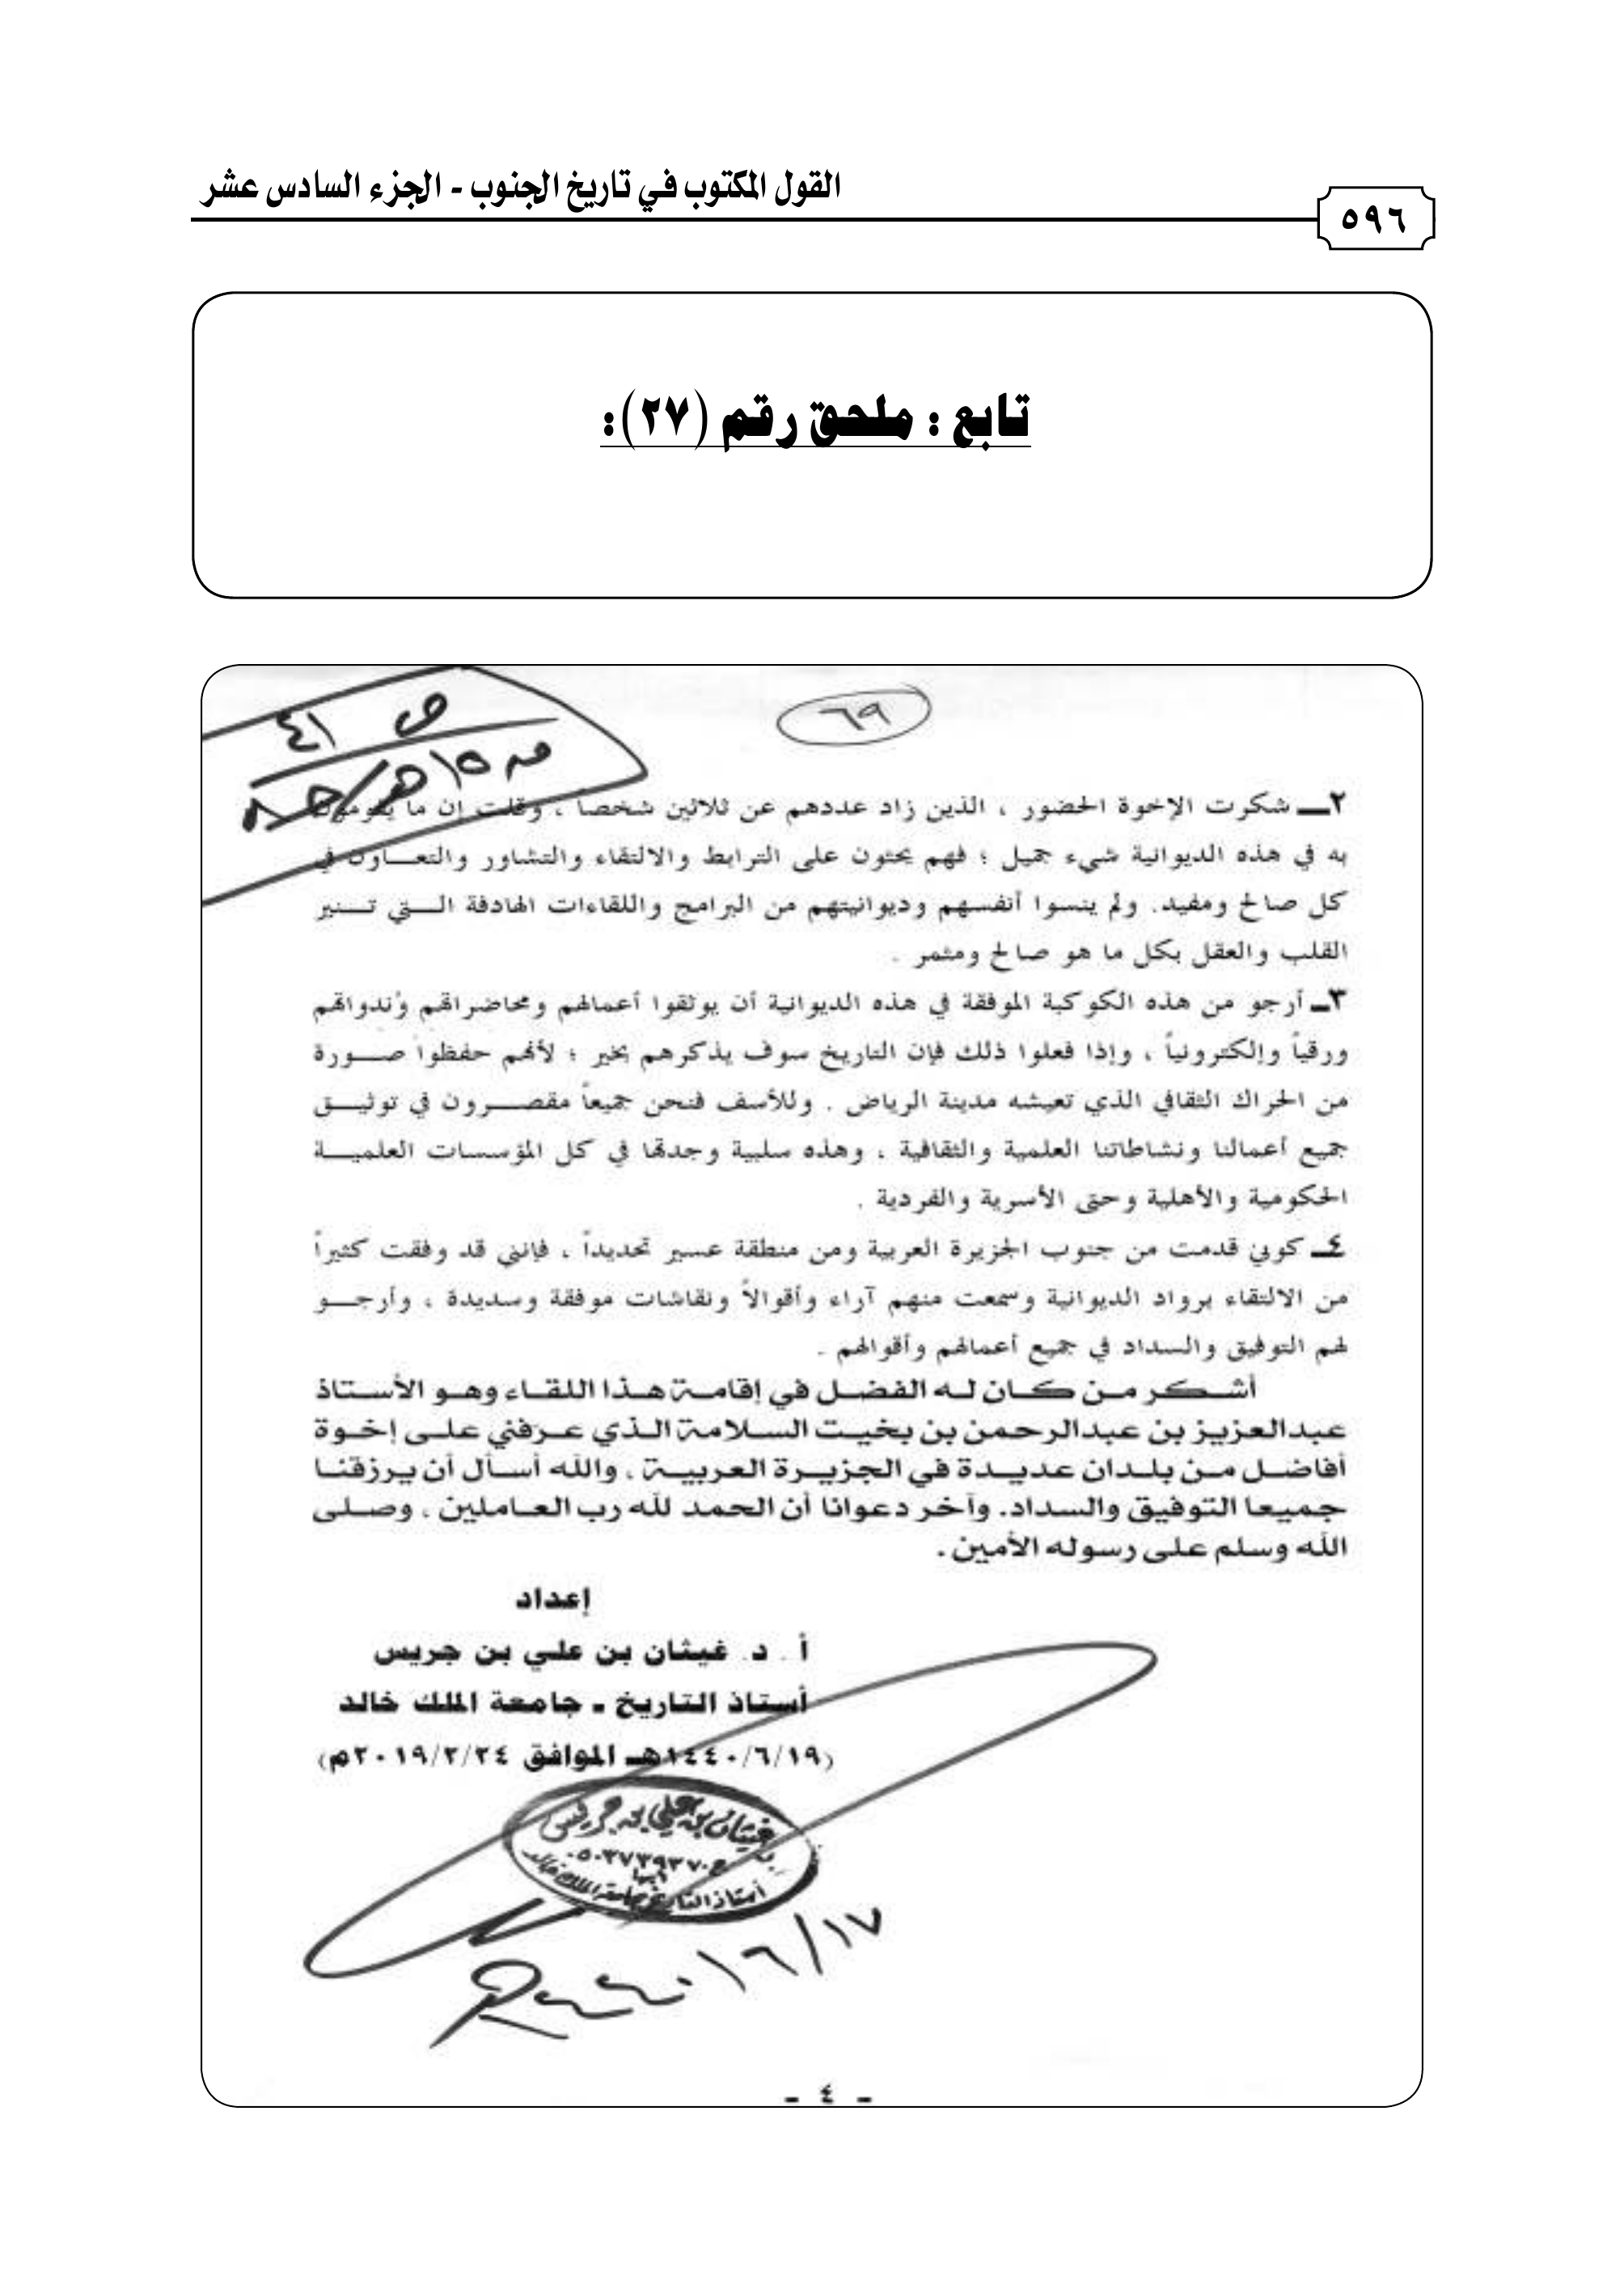 القول المكتوب في تاريخ الجنوب - الجزء السادس عشر
٥٩٦
تابع : ملحق رقم (٢٧):
٦٩
ص ٤١
٢ـ شكرت الإخوة الحضور ، الذين زاد عددهم عن ثلاثين شخصاً ، وقلت إن ما يقومون
به في هذه الديوانية شيء جميل ؛ فهم يحثون على الترابط والالتقاء والتشاور والتعـــاون في
كل صالح ومفيد. ولم ينسوا أنفسهم وديوانيتهم من البرامج واللقاءات الهادفة الـــتي تـــنير
القلب والعقل بكل ما هو صالح ومثمر .
٣ـ أرجو من هذه الكوكبة الموفقة في هذه الديوانية أن يوثقوا أعمالهم ومحاضراتهم وندواتهم
ورقياً وإلكترونياً ، وإذا فعلوا ذلك فإن التاريخ سوف يذكرهم بخير ؛ لأنهم حفظوا صـــورة
من الحراك الثقافي الذي تعيشه مدينة الرياض . وللأسف فنحن جميعاً مقصـــرون في توثيـــق
جميع أعمالنا ونشاطاتنا العلمية والثقافية ، وهذه سلبية وجدتها في كل المؤسسات العلميـــة
الحكومية والأهلية وحتى الأسرية والفردية .
٤ـ كوني قدمت من جنوب الجزيرة العربية ومن منطقة عسير تحديداً ، فإنني قد وفقت كثيراً
من الالتقاء برواد الديوانية وسمعت منهم آراء وأقوالاً ونقاشات موفقة وسديدة ، وأرجـــو
لهم التوفيق والسداد في جميع أعمالهم وأقوالهم .
أشـكـر مـن كـان لـه الفضـل في إقامـة هـذا اللقـاء وهـو الأسـتاذ
عبدالعزيز بن عبدالرحمن بن بخيت السـلامة الـذي عـرفني علـى إخـوة
أفاضـل مـن بلـدان عديـدة في الجزيـرة العربيـة ، والله أسـأل أن يـرزقنـا
جميعا التوفيق والسداد. وآخر دعوانا أن الحمد لله رب العـاملين ، وصـلى
الله وسلم على رسوله الأمين .
إعداد
أ . د. غيثان بن علي بن جريس
أستاذ التاريخ ـ جامعة الملك خالد
(١٤٤٠/٦/١٩هـ الموافق ٢٠١٩/٢/٢٤م)
غيثان بن علي بن جريس
أبها
أستاذ التاريخ بجامعة الملك خالد
١٤٤٠/٦/١٧
- ٤ -